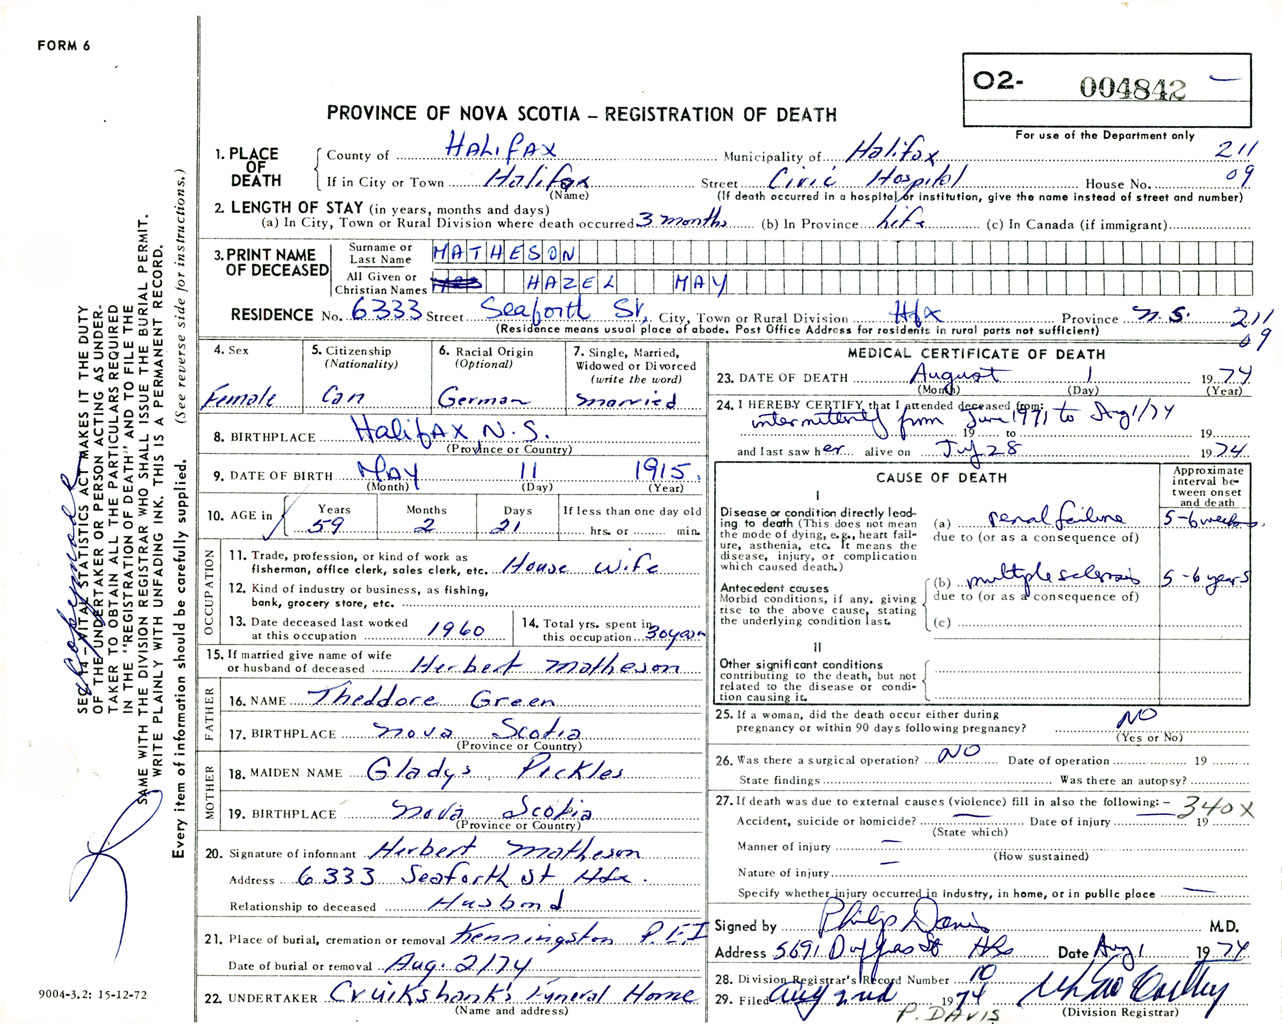 FORM 6
O2- 004842
For use of the Department only
PROVINCE OF NOVA SCOTIA – REGISTRATION OF DEATH
1. PLACE OF DEATH
County of HALIFAX Municipality of Halifax 211
If in City or Town Halifax Street Civic Hospital House No. 09
(Name) (If death occurred in a hospital or institution, give the name instead of street and number)
2. LENGTH OF STAY (in years, months and days)
(a) In City, Town or Rural Division where death occurred 3 months (b) In Province Life (c) In Canada (if immigrant)
3. PRINT NAME OF DECEASED
Surname or Last Name MATHESON
All Given or Christian Names HAZEL MAY
RESIDENCE No. 6333 Street Seaforth St, City, Town or Rural Division Hfx Province N.S. 211
(Residence means usual place of abode. Post Office Address for residents in rural parts not sufficient) 09
4. Sex Female
5. Citizenship (Nationality) Can
6. Racial Origin (Optional) German
7. Single, Married, Widowed or Divorced (write the word) Married
8. BIRTHPLACE Halifax N.S.
(Province or Country)
9. DATE OF BIRTH May 11 1915
(Month) (Day) (Year)
10. AGE in Years 59 Months 2 Days 21 If less than one day old hrs. or min.
OCCUPATION
11. Trade, profession, or kind of work as fisherman, office clerk, sales clerk, etc. House wife
12. Kind of industry or business, as fishing, bank, grocery store, etc.
13. Date deceased last worked at this occupation 1960
14. Total yrs. spent in this occupation 30 years
15. If married give name of wife or husband of deceased Herbert Matheson
FATHER
16. NAME Theddore Green
17. BIRTHPLACE Nova Scotia
(Province or Country)
MOTHER
18. MAIDEN NAME Gladys Pickles
19. BIRTHPLACE Nova Scotia
(Province or Country)
20. Signature of informant Herbert Matheson
Address 6333 Seaforth St Hfx.
Relationship to deceased Husbond
21. Place of burial, cremation or removal Kenningston P.E.I
Date of burial or removal Aug. 2/74
22. UNDERTAKER Cruikshank's Funeral Home
(Name and address)
MEDICAL CERTIFICATE OF DEATH
23. DATE OF DEATH August 1 1974
(Month) (Day) (Year)
24. I HEREBY CERTIFY that I attended deceased from:
intermittently from June 1971 to Aug 1/74
19 to 19
and last saw her alive on July 28 1974
CAUSE OF DEATH
Approximate interval between onset and death
I
Disease or condition directly leading to death (This does not mean the mode of dying, e.g., heart failure, asthenia, etc. It means the disease, injury, or complication which caused death.)
(a) renal failure 5-6 weeks
due to (or as a consequence of)
Antecedent causes
Morbid conditions, if any, giving rise to the above cause, stating the underlying condition last.
(b) multiple sclerosis 5-6 years
due to (or as a consequence of)
(c)
II
Other significant conditions contributing to the death, but not related to the disease or condition causing it.
25. If a woman, did the death occur either during pregnancy or within 90 days following pregnancy? NO
(Yes or No)
26. Was there a surgical operation? NO Date of operation 19
State findings Was there an autopsy?
27. If death was due to external causes (violence) fill in also the following: – 340X
Accident, suicide or homicide? — Date of injury — 19
(State which)
Manner of injury —
(How sustained)
Nature of injury —
Specify whether injury occurred in industry, in home, or in public place —
Signed by Philip Davis M.D.
Address 5691 Duffus St Hfx Date Aug 1 1974
28. Division Registrar's Record Number 10
29. Filed Aug 2nd 1974
(Division Registrar)
P. DAVIS
SEC. 14 – VITAL STATISTICS ACT MAKES IT THE DUTY
OF THE UNDERTAKER OR PERSON ACTING AS UNDER-
TAKER TO OBTAIN ALL THE PARTICULARS REQUIRED
IN THE "REGISTRATION OF DEATH" AND TO FILE THE
SAME WITH THE DIVISION REGISTRAR WHO SHALL ISSUE THE BURIAL PERMIT.
WRITE PLAINLY WITH UNFADING INK. THIS IS A PERMANENT RECORD.
Every item of information should be carefully supplied. (See reverse side for instructions.)
9004-3.2: 15-12-72